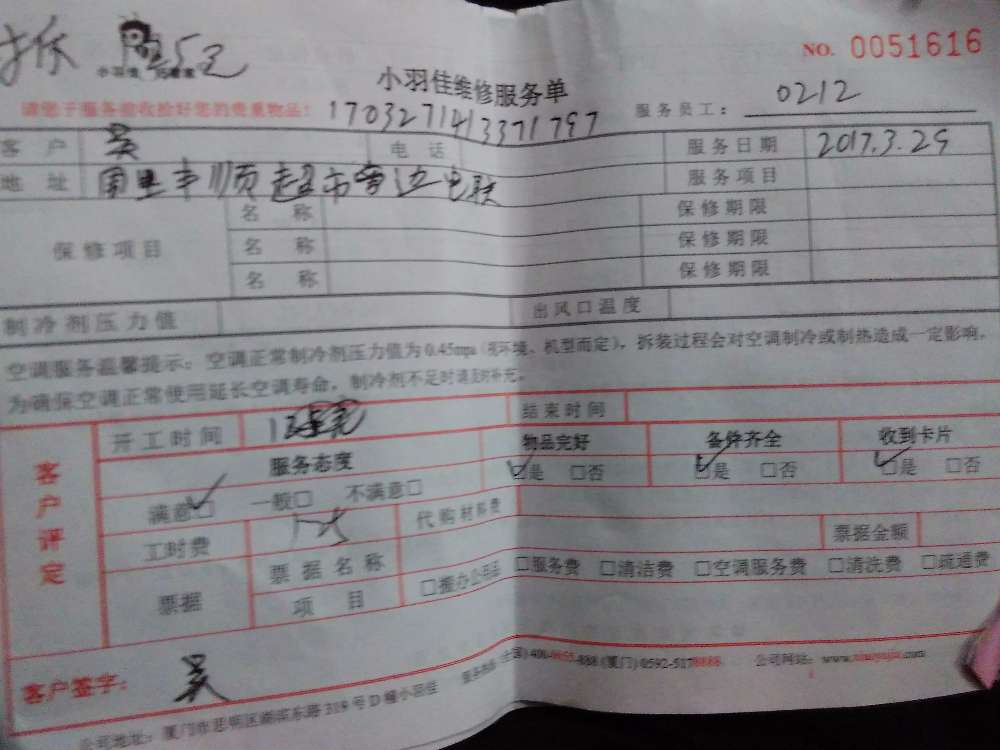 NO. 0051616
小羽佳维修服务单
请您于服务前收捡好您的贵重物品!
17032714133 71797
服务员工: 0212
客户 吴 电话 服务日期 2017.3.29
地址 服务项目
保修项目
名称 保修期限
名称 保修期限
名称 保修期限
制冷剂压力值 出风口温度
空调服务温馨提示:空调正常制冷剂压力值为0.45mpa(视环境、机型而定),拆装过程会对空调制冷或制热造成一定影响,
为确保空调正常使用延长空调寿命,制冷剂不足时请及时补充。
客户评定
开工时间 结束时间
服务态度 物品完好 备件齐全 收到卡片
满意☑ 一般□ 不满意□ ☑是 □否 ☑是 □否 ☑是 □否
工时费 代购材料费 票据金额
票据 票据名称
项目 □服务费 □清洁费 □空调服务费 □清洗费 □疏通费
客户签字: 吴
公司地址:厦门市思明区湖滨东路319号D幢小羽佳 (厦门) 0592-5178888 公司网站:www.xiaoyujia.com